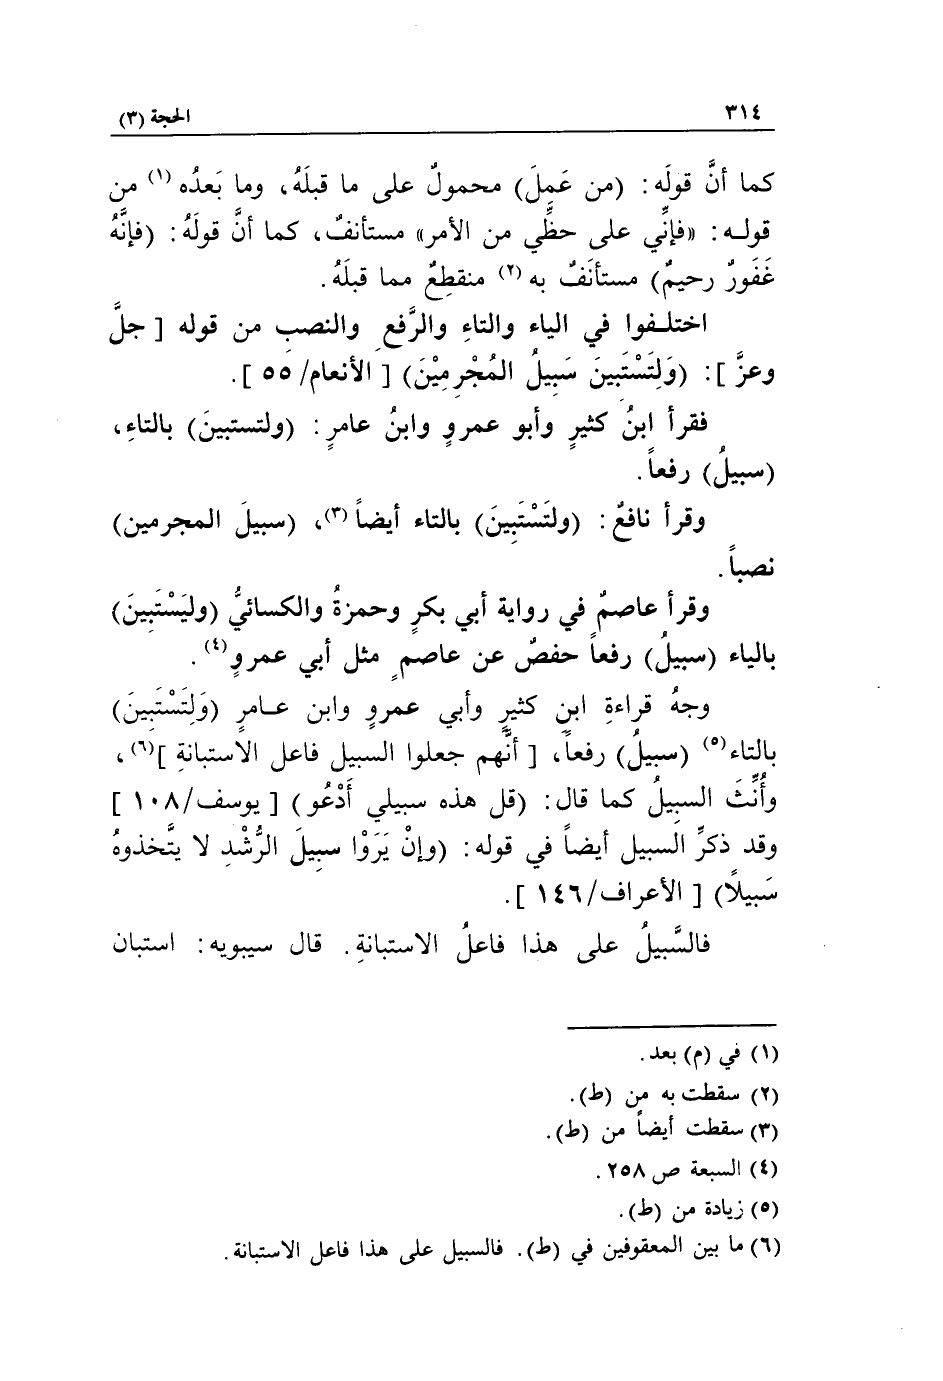 ٣١٤
الحجة (٣)
كما أنَّ قولَه: (من عَمِلَ) محمولٌ على ما قبلَهُ، وما بَعدُه (١) من
قولـه: «فإنِّي على حظِّي من الأمر» مستأنفٌ، كما أنَّ قولَهُ: (فإنَّهُ
غَفَورٌ رحيمٌ) مستأنَفٌ به (٢) منقطِعٌ مما قبلَهُ.
اختلـفوا في الياء والتاءِ والرَّفعِ والنصبِ من قوله [ جلَّ
وعزَّ ]: (وَلِتَسْتَبِينَ سَبِيلُ المُجْرِمِيْنَ) [ الأنعام/ ٥٥ ].
فقرأ ابنُ كثيرٍ وأبو عمروٍ وابنُ عامرٍ: (ولتستبينَ) بالتاءِ،
(سبيلُ) رفعاً.
وقرأ نافعٌ: (ولتَسْتَبِينَ) بالتاء أيضاً (٣)، (سبيلَ المجرمين)
نصباً.
وقرأ عاصمٌ في رواية أبي بكرٍ وحمزةُ والكسائيُّ (وليَسْتَبِينَ)
بالياء (سبيلُ) رفعاً حفصٌ عن عاصمٍ مثل أبي عمروٍ (٤).
وجهُ قراءةِ ابنِ كثيرٍ وأبي عمروٍ وابن عـامرٍ (وَلِتَسْتَبِينَ)
بالتاء (٥) (سبيلُ) رفعاً، [ أنَّهم جعلوا السبيل فاعل الاستبانةِ ] (٦)،
وأُنِّثَ السبيلُ كما قال: (قل هذه سبيلي أَدْعُو) [ يوسف/ ١٠٨ ]
وقد ذكِّرَ السبيل أيضاً في قوله: (وإنْ يَرَوْا سبِيلَ الرُّشْدِ لا يتَّخذوهُ
سَبيلاً) [ الأعراف/ ١٤٦ ].
فالسَّبيلُ على هذا فاعلُ الاستبانةِ. قال سيبويه: استبان
(١) في (م) بعد.
(٢) سقطت به من (ط).
(٣) سقطت أيضاً من (ط).
(٤) السبعة ص ٢٥٨.
(٥) زيادة من (ط).
(٦) ما بين المعقوفين في (ط). فالسبيل على هذا فاعل الاستبانة.